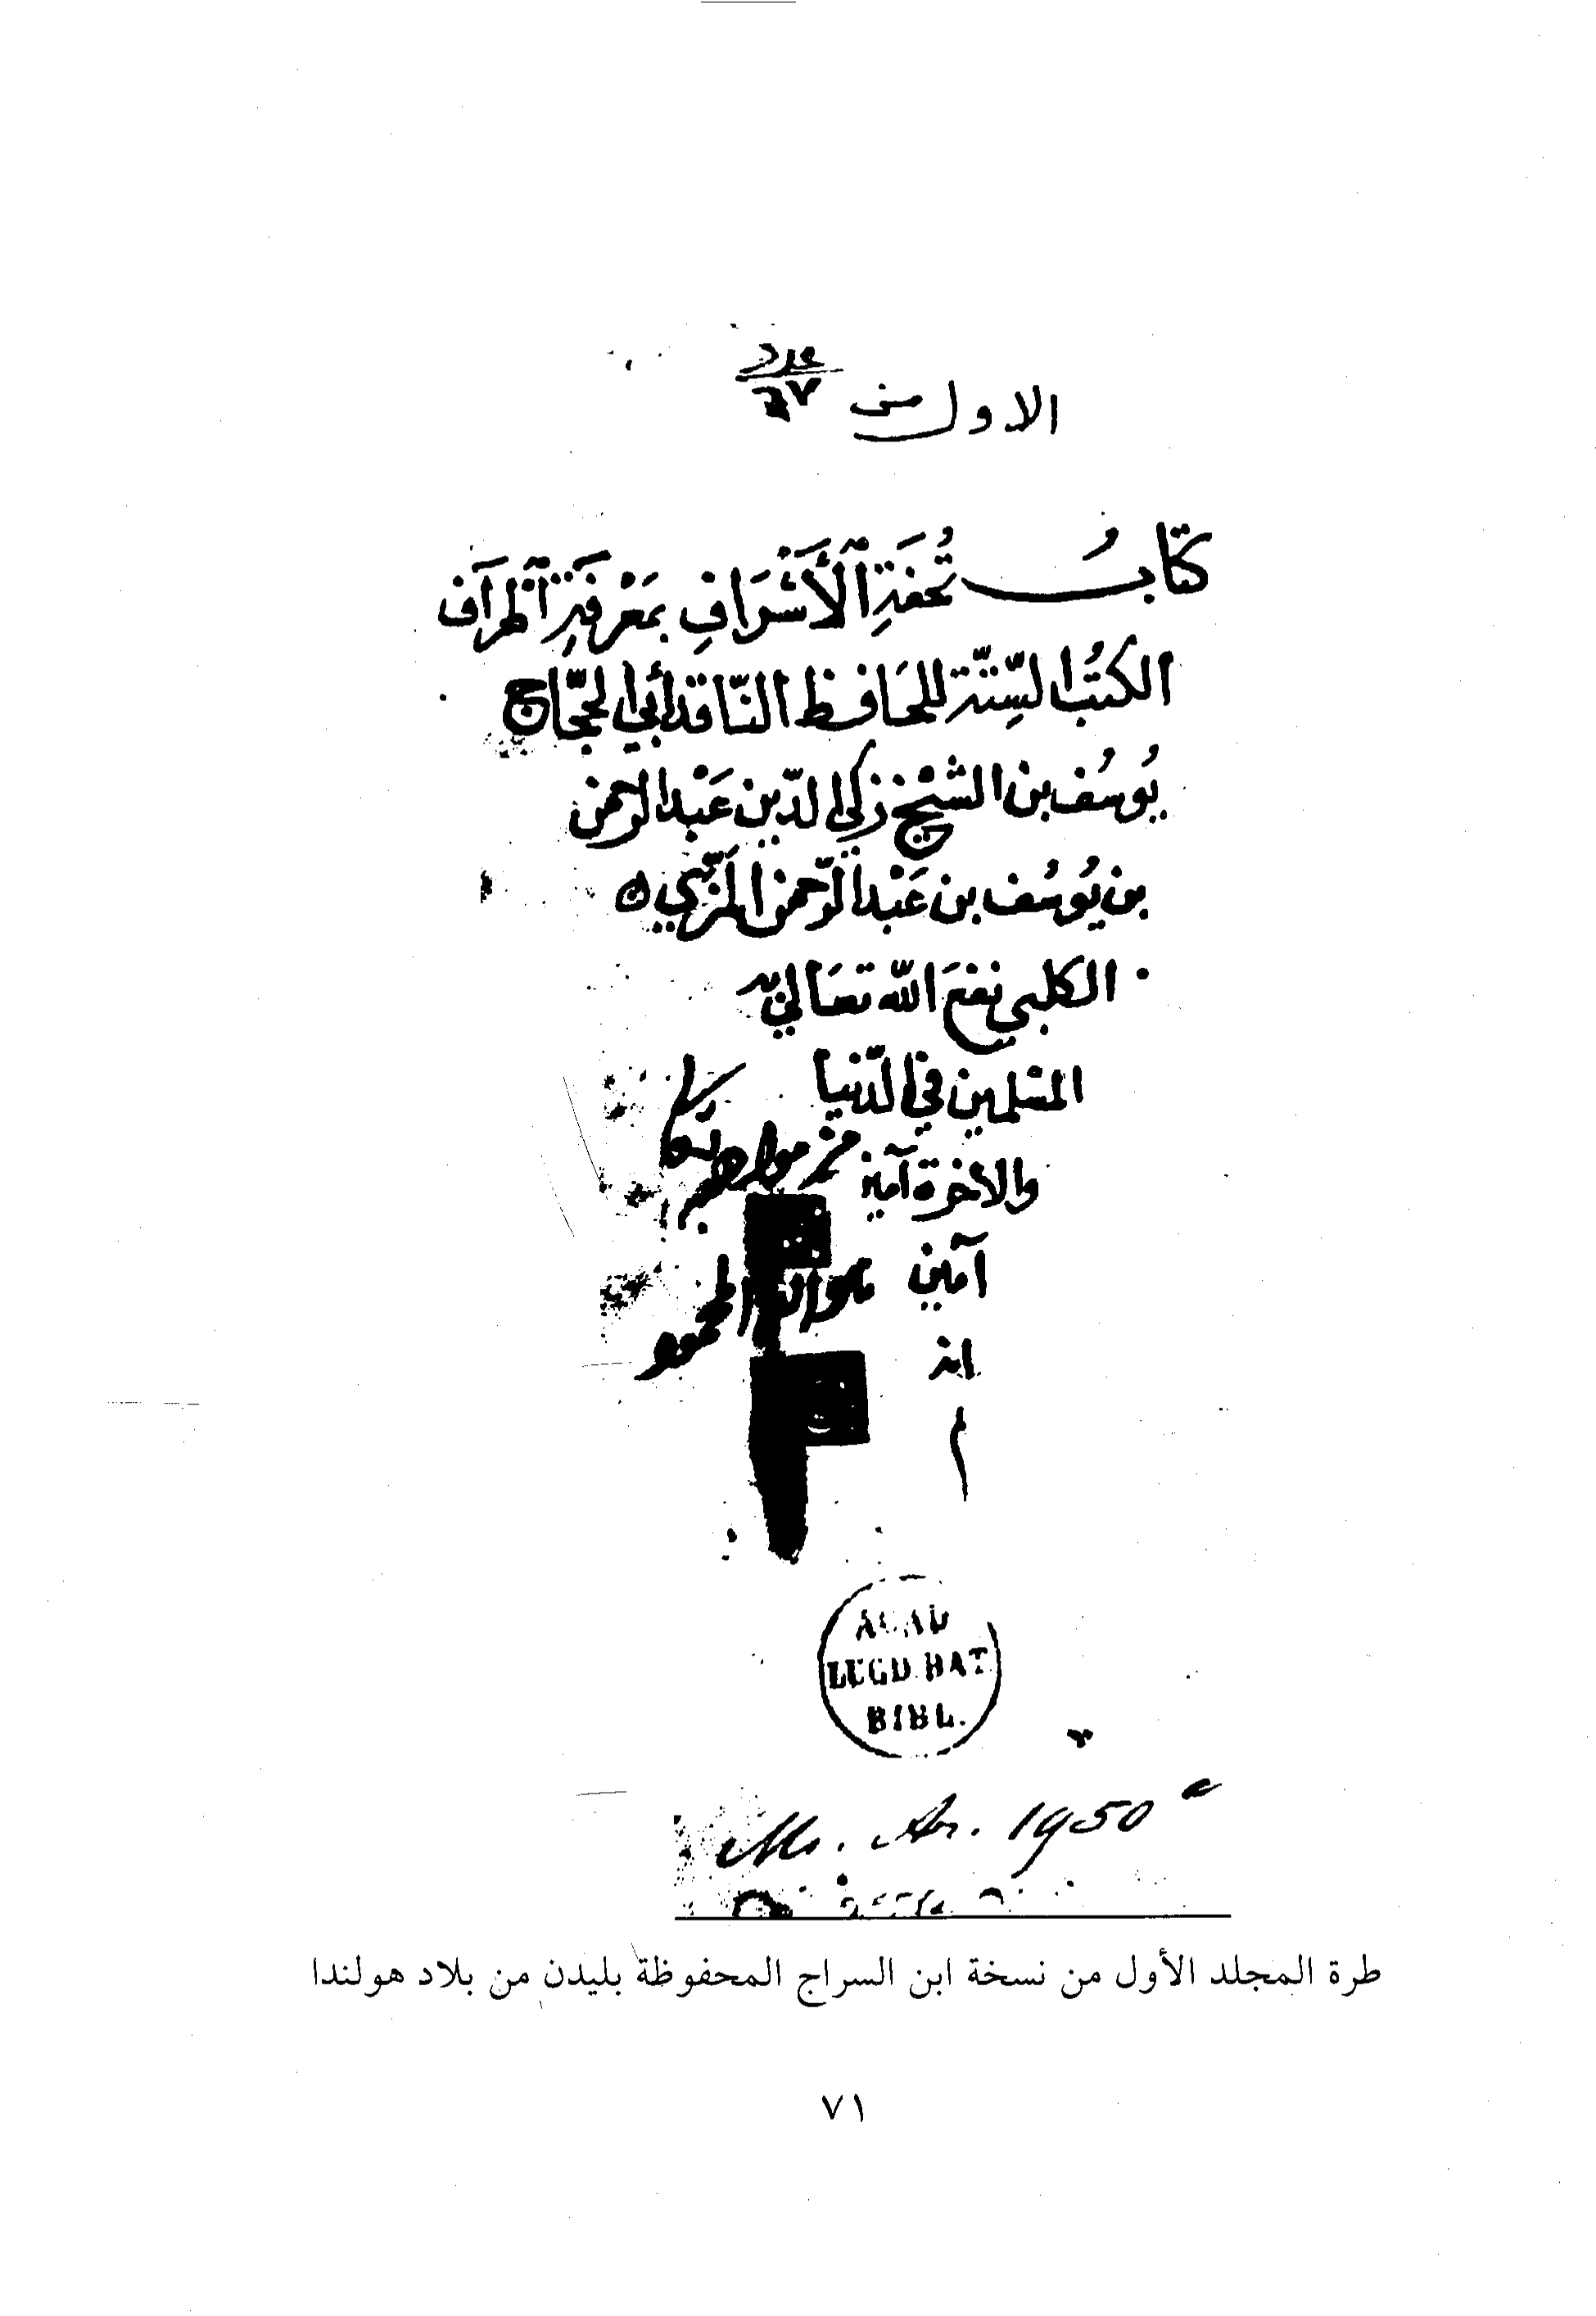 عدد
٦٧
الاول من
كتابُ تُحفَةِ الأَشْرَافِ بمَعْرفَةِ آطرآف
الكتُب السِّتّة للحَافظ النّاقد أبي الحجّاج
يُوسُف بن الشّيْخ زكي الدّين عَبْد الرحمن
بن يُوسُف بن عَبْد الرّحمن المزّي
الكلبي نفعَ الله تعَالى به
المسْلمين في الدّنيا
والاخرة آمين
آمين
ACAD
LUGD BAT
BIBL.
Ms. Ar. 1950 a
طرة المجلد الأول من نسخة ابن السراج المحفوظة بليدن من بلاد هولندا
٧١